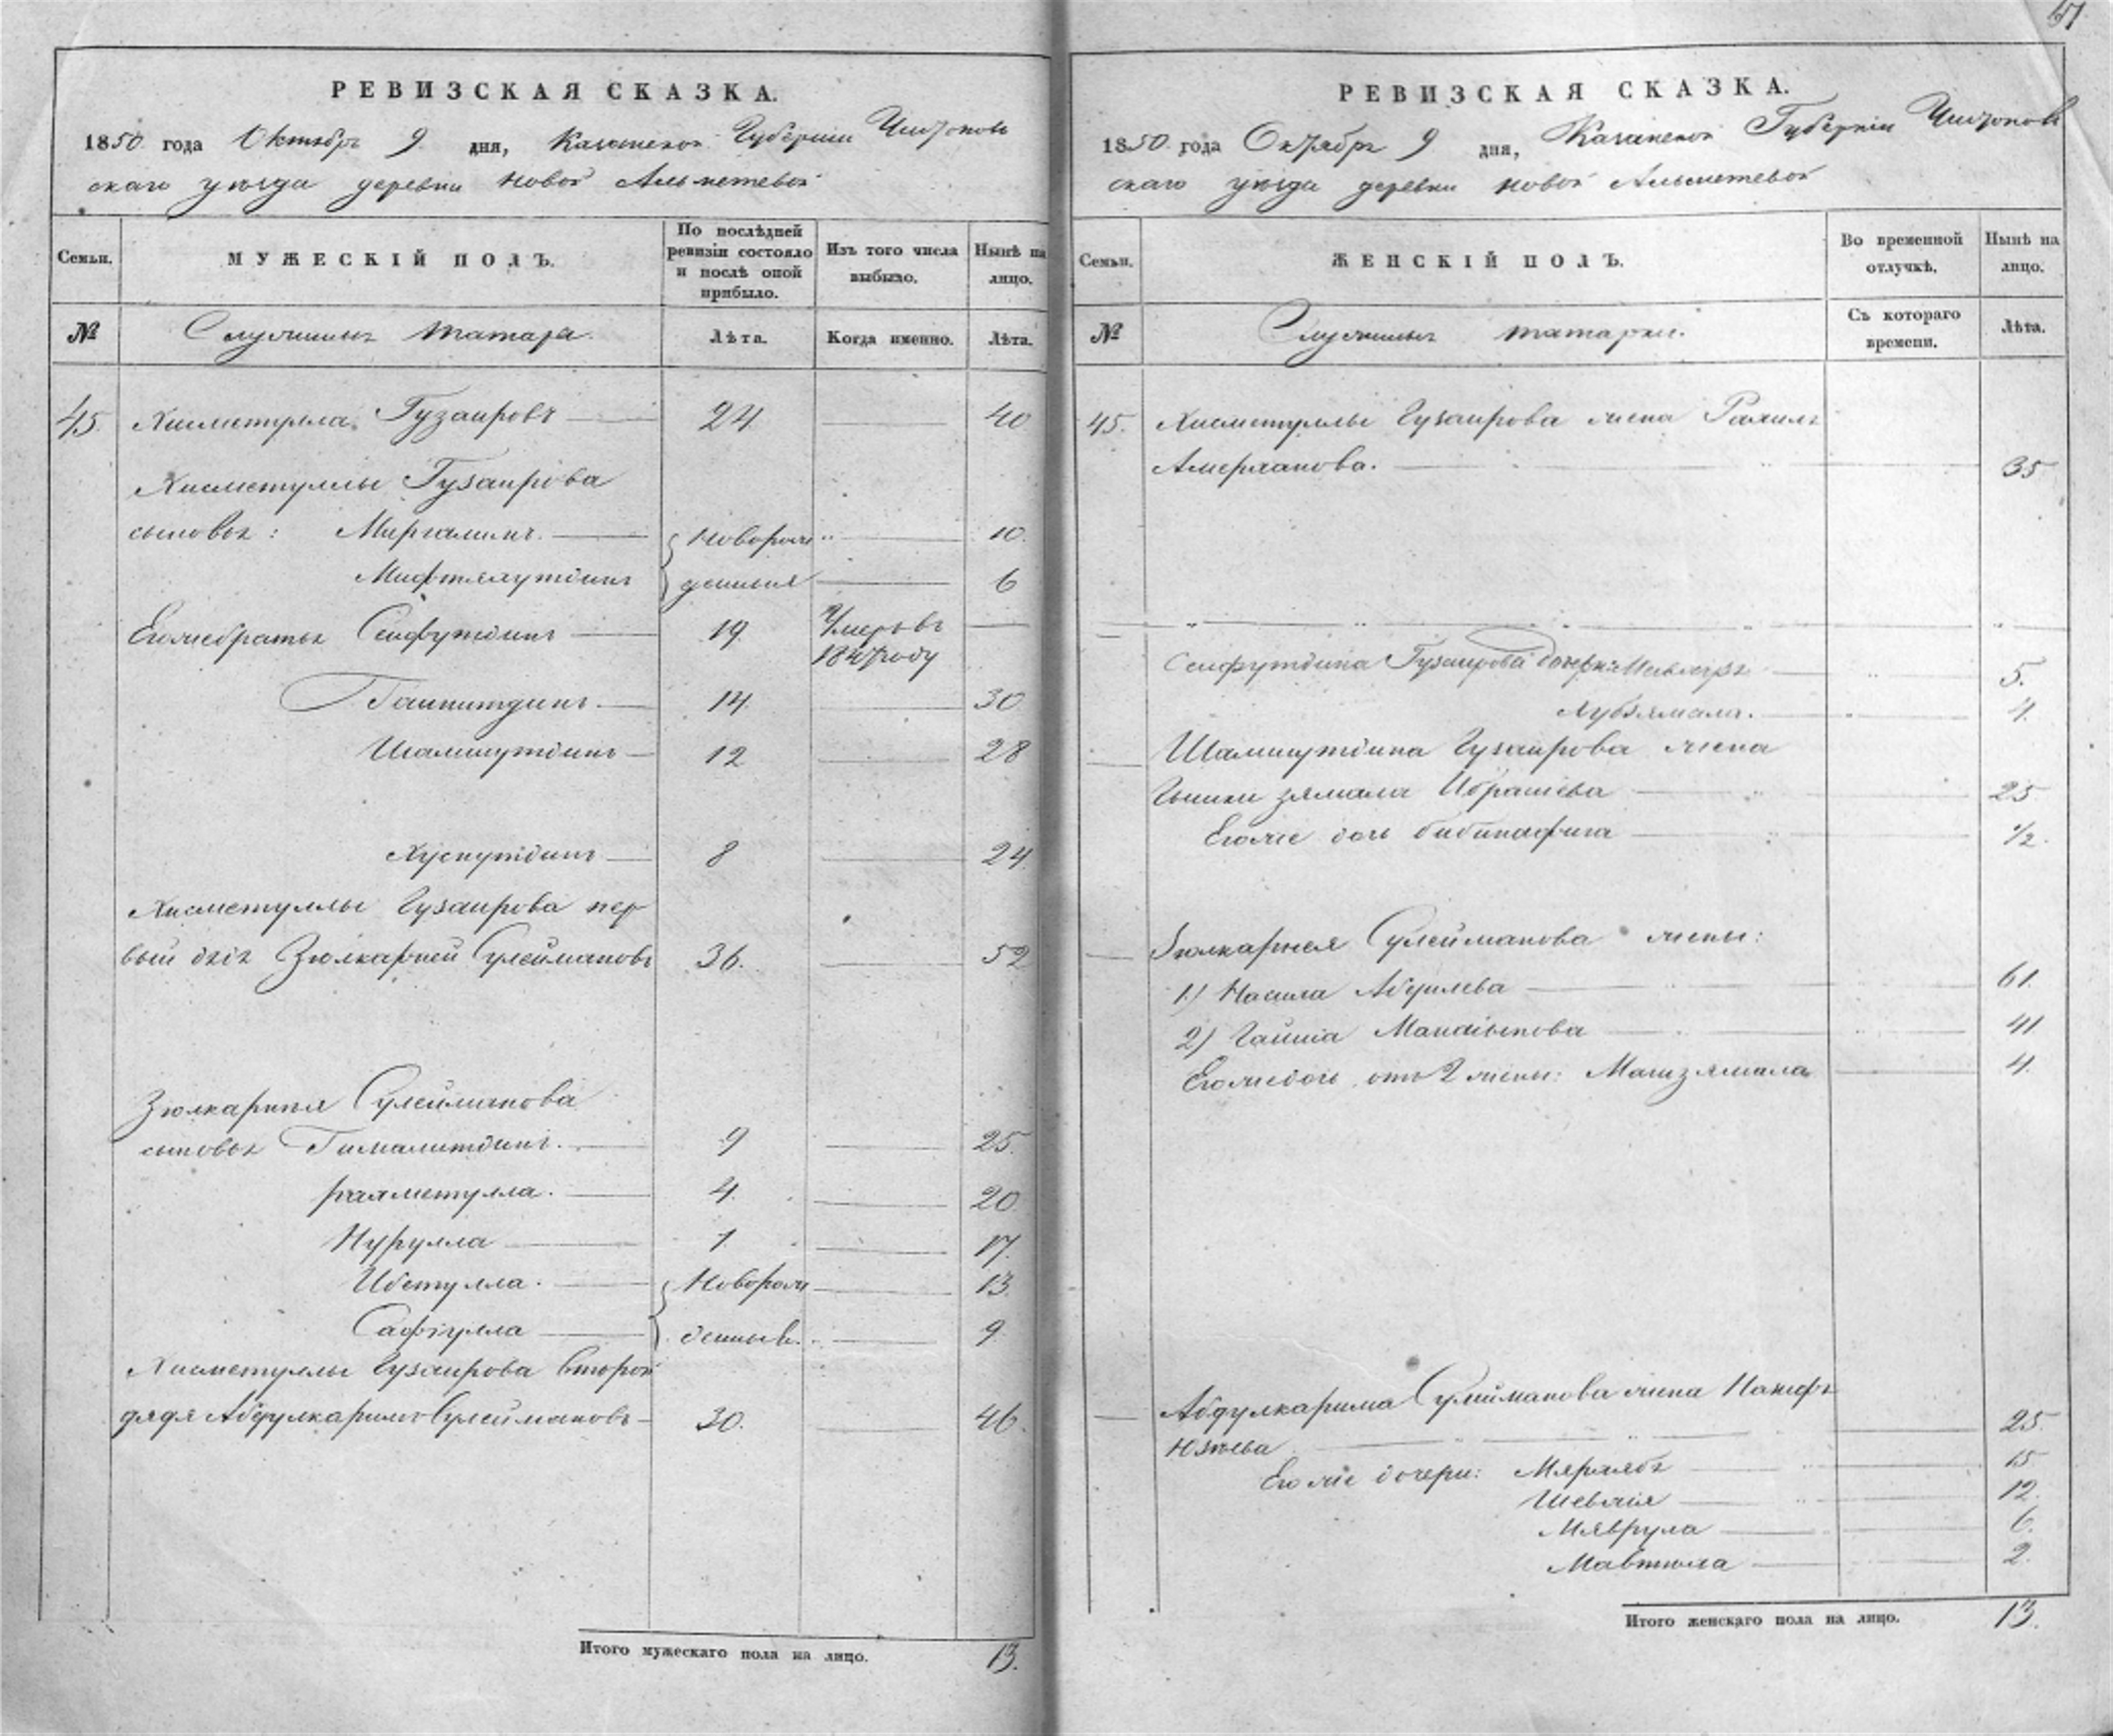 51
РЕВИЗСКАЯ СКАЗКА.
1850 года Октября 9 дня, Казанской Губернии Чистополь
скаго уѣзда деревни Новой Альметевой
Семьи.
МУЖЕСКІЙ ПОЛЪ.
По послѣдней ревизіи состояло и послѣ оной прибыло.
Изъ того числа выбыло.
Нынѣ на лицо.
№
Служилыхъ татаръ.
Лѣта.
Когда именно.
Лѣта.
45. Хисметулла Гузаировъ 24 40
Хисметуллы Гузаирова
сыновья: Миргалимъ. Новорож 10.
Мифтяхутдинъ денныя 6
Егожебратья Сейфутдинъ 19. Умеръ въ
1847 году
Гайнитдинъ. 14. 30
Шамшутдинъ 12 28
Хуснутдинъ 8 24.
Хисметуллы Гузаирова пер
вый дядя Зюлкарней Сулеймановъ 36. 52
Зюлкарнея Сулейманова
сыновья Гималитдинъ. 9 25.
рахметулла. 4. 20
Нурулла 1. 17.
Ибетулла. Новорож 13.
Сафіулла денныя. 9
Хисметуллы Гузаирова второй
дядя Абдулкаримъ Сулеймановъ 30. 46.
Итого мужескаго пола на лицо. 13.
РЕВИЗСКАЯ СКАЗКА.
1850 года Октября 9 дня, Казанской Губерніи Чистополь
скаго уѣзда деревни новой Альметевой
Семьи.
ЖЕНСКІЙ ПОЛЪ.
Во временной отлучкѣ.
Нынѣ на лицо.
№
Служилыхъ татарки.
Съ котораго времени.
Лѣта.
45. Хисметуллы Гузаирова жена
35
Сейфутдина Гузаирова дочери 5.
4.
Шамшутдина Гузаирова жена
зямала Ибраіева 25
Егоже дочь бибинафига 1/2.
Зюлкарнея Сулейманова жены:
1.) 61.
2) Гайша 41
Егоже дочь отъ 2 жены: Магизямала 4.
Абдулкарима Сулейманова жена
25
Егоже дочери: 15
12.
6.
2.
Итого женскаго пола на лицо. 13.